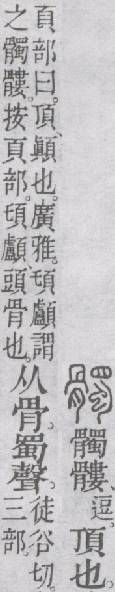 髑 髑髏、逗。頂也。
頁部曰。頂、顚也。廣雅。𩑒顱謂
之髑髏。按頁部。𩑒顱、頭骨也。
从骨。蜀聲。
徒谷切。
三部。